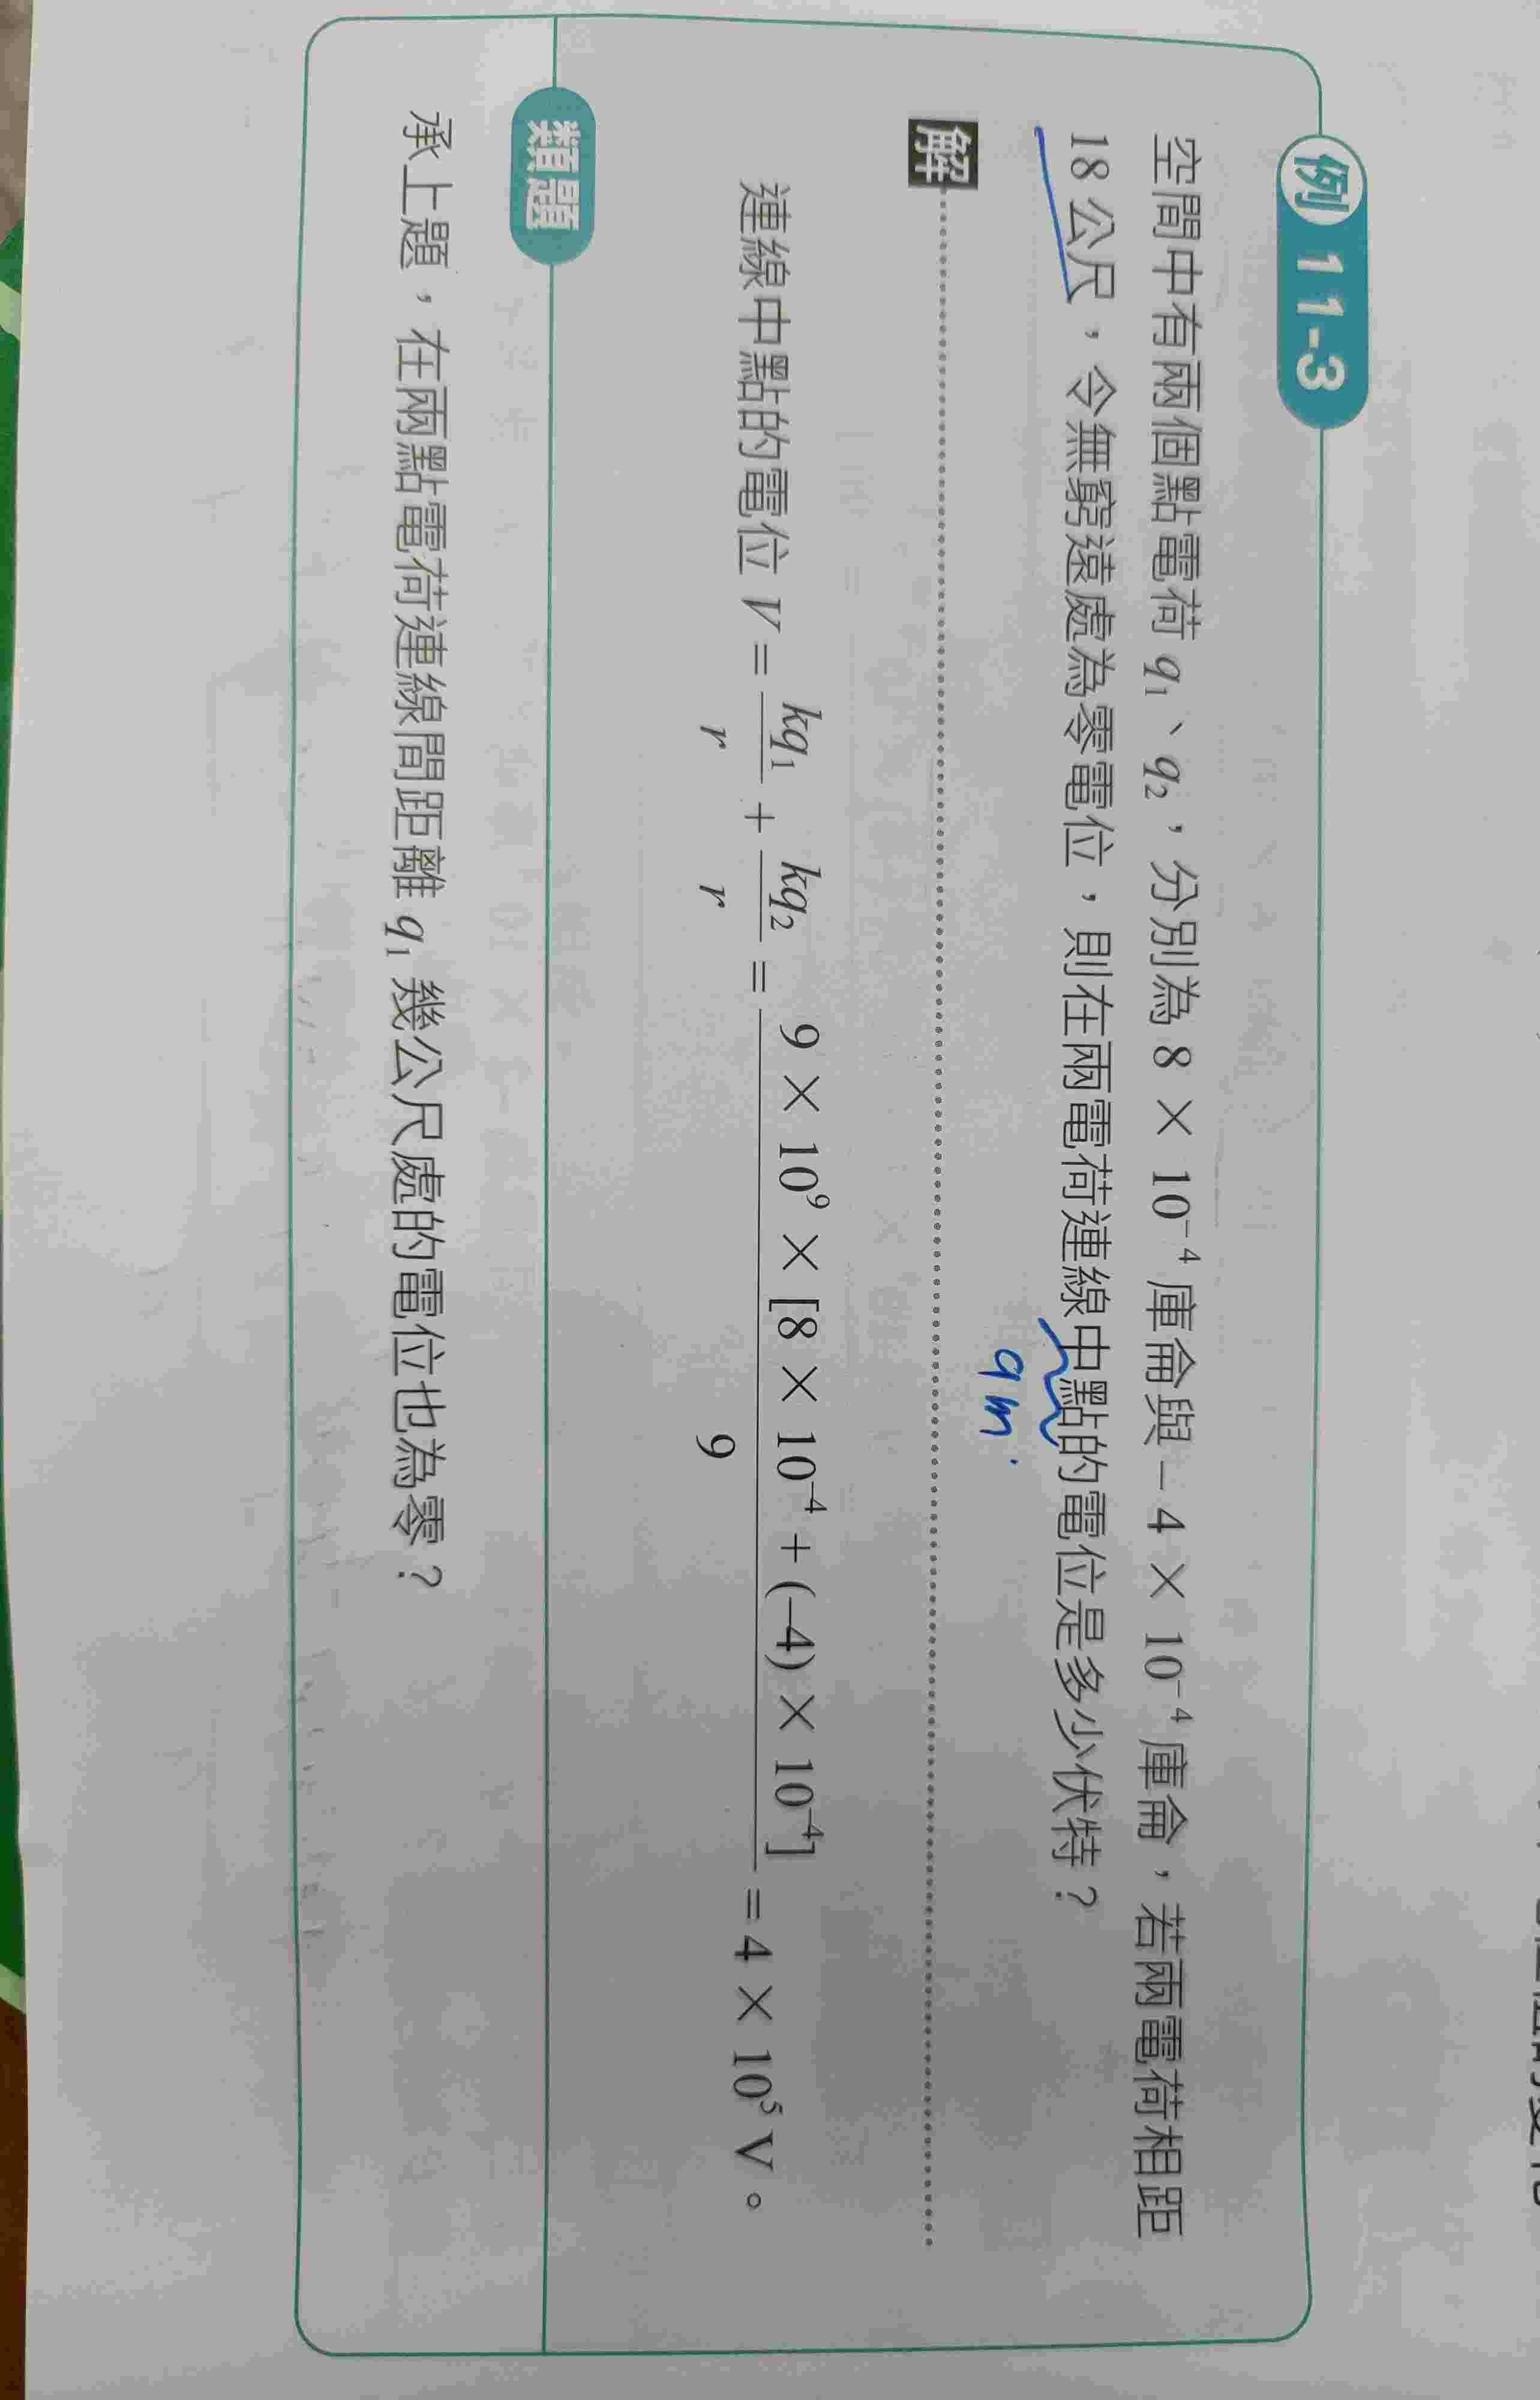 例 11-3
空間中有兩個點電荷 q₁、q₂，分別為 8 × 10⁻⁴ 庫侖與 – 4 × 10⁻⁴ 庫侖，若兩電荷相距
18 公尺，令無窮遠處為零電位，則在兩電荷連線中點的電位是多少伏特？
9m.
解
連線中點的電位 V = kq₁/r + kq₂/r = 9 × 10⁹ × [8 × 10⁻⁴ + (–4) × 10⁻⁴]/9 = 4 × 10⁵ V。
類題
承上題，在兩點電荷連線間距離 q₁ 幾公尺處的電位也為零？